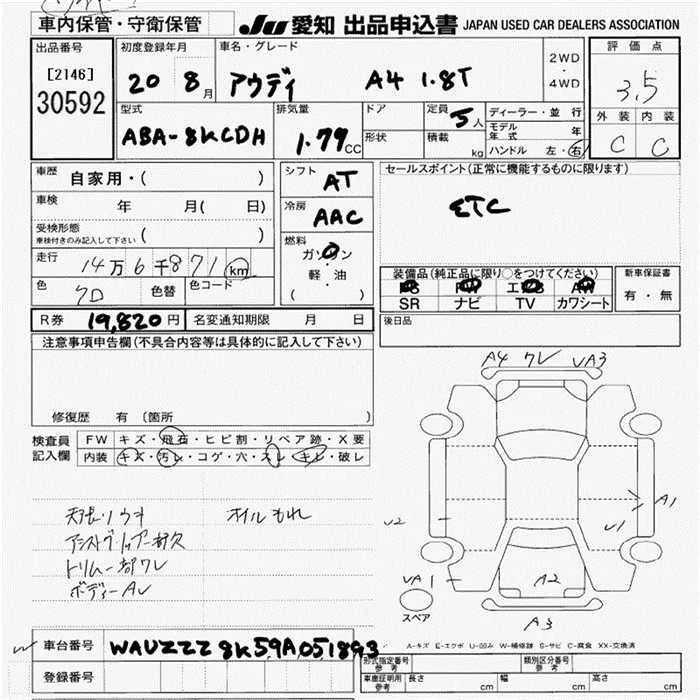 車内保管・守衛保管
JU 愛知 出品申込書 JAPAN USED CAR DEALERS ASSOCIATION
出品番号 [2146] 30592
初度登録年月 20 8月
車名・グレード アウディ A4 1.8T
2WD・4WD
評価点 3.5
外装 内装
C C
型式 ABA-8KCDH
排気量 1.79 CC
ドア
形状
定員 5人
積載 kg
ディーラー・並行
モデル年式 年
ハンドル 左・右
車歴 自家用・( )
車検 年 月( 日)
受検形態 車検付きのみ記入して下さい ( )
走行 14万6千871 km
色 クロ 色替 色コード
シフト AT
冷房 AAC
燃料 ガソリン・軽油 ( )
セールスポイント(正常に機能するものに限ります)
ETC
装備品(純正品に限り○をつけてください)
PS PW エアB AW
SR ナビ TV カワシート
新車保証書
有・無
R券 19,820円 名変通知期限 月 日
後日品
注意事項申告欄(不具合内容等は具体的に記入して下さい)
修復歴 有 〔箇所 〕
検査員記入欄
FW キズ・飛石・ヒビ割・リペア跡・X要
内装 キズ・汚レ・コゲ・穴・スレ・キレ・破レ
天張リウキ オイルもれ
トリム一部ワレ
ボディーAU
A4 ワレ UA3
U2
A1
U1
UA1
A2
A3
スペア
A-キズ E-エクボ U-凹み W-補修跡 S-サビ C-腐食 XX-交換済
車台番号 WAUZZZ8K59A051893
登録番号
形式指定番号 参考 類別区分番号 参考
車庫証明用 参考 長さ cm 幅 cm 高さ cm